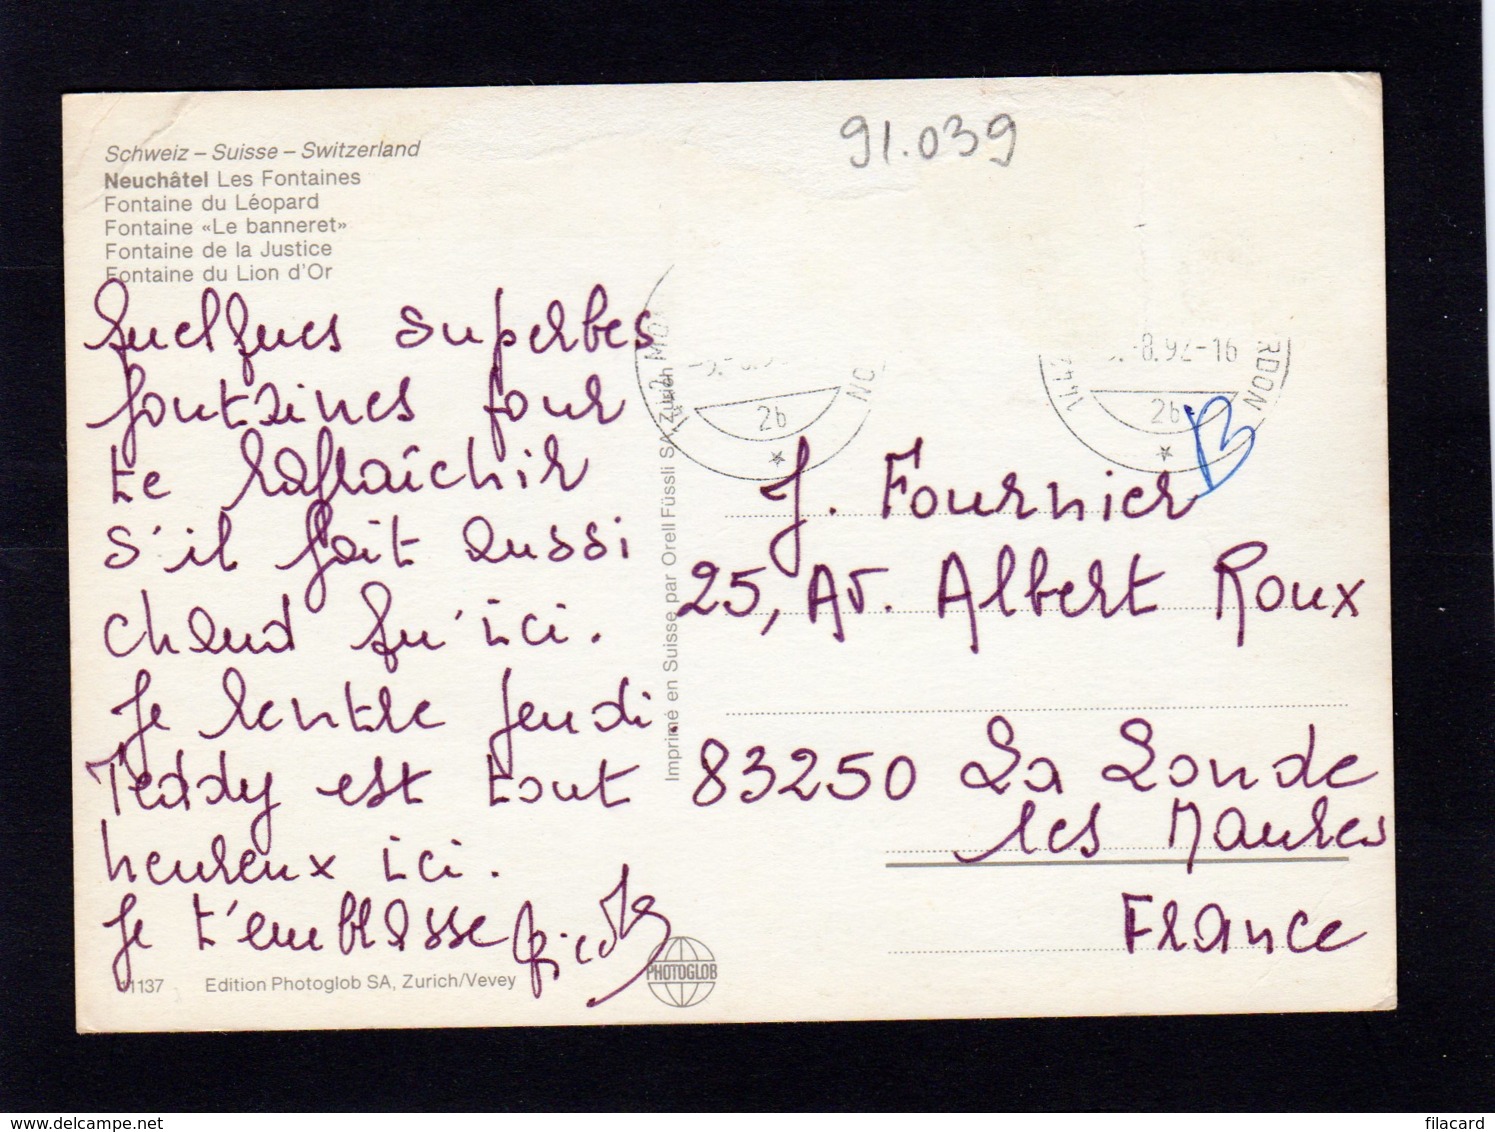 91.039
Schweiz – Suisse – Switzerland
Neuchâtel Les Fontaines
Fontaine du Léopard
Fontaine «Le banneret»
Fontaine de la Justice
Fontaine du Lion d'Or
Quelques superbes
fontaines pour
te rafraîchir
s'il fait aussi
chaud qu'ici.
Je rentre jeudi.
Teddy est tout
heureux ici.
Je t'embrasse
11137 Edition Photoglob SA, Zurich/Vevey
PHOTOGLOB
Imprimé en Suisse par Orell Füssli SA, Zurich
26
-8.92-16
RDON
26
B
J. Fournier
25, Av. Albert Roux
83250 La Londe
les Maures
France
filacard
www.delcampe.net